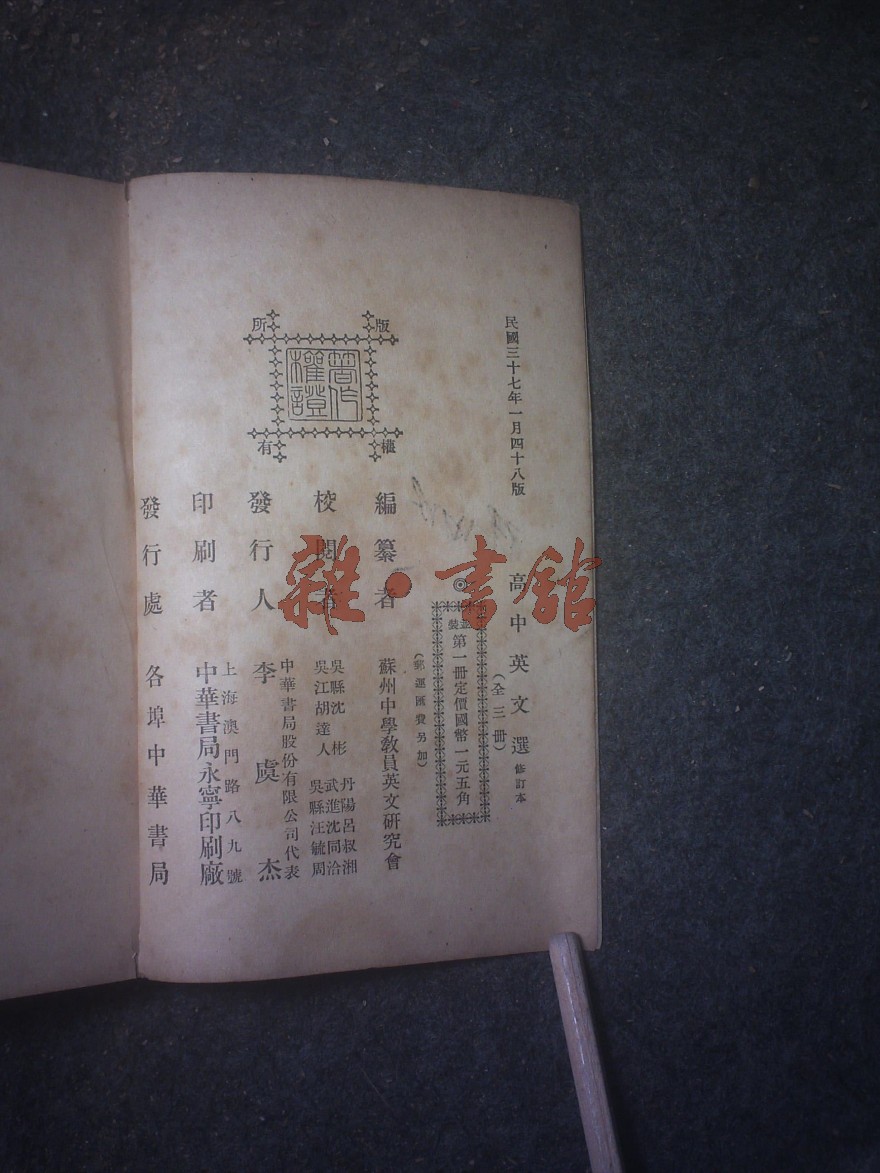 民國三十七年一月四十八版
高中英文選 修訂本
(全三冊)
◎
裝
第一冊定價國幣一元五角
(郵運匯費另加)
版權所有
著作權證
編纂者 蘇州中學教員英文研究會
校閱者 丹陽呂叔湘
武進沈同洽
吳縣汪毓周
吳縣沈彬
吳江胡達人
發行人 李虞杰
中華書局股份有限公司代表
印刷者 中華書局永寧印刷廠
上海澳門路八九號
發行處 各埠中華書局
雜·書館